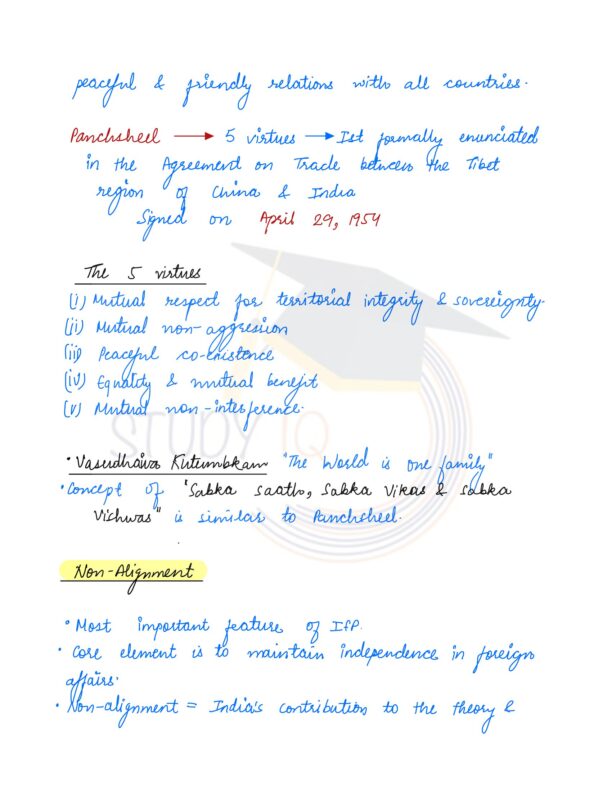 peaceful & friendly relations with all countries.
Panchsheel → 5 virtues → Ist formally enunciated
in the Agreement on Trade between the Tibet
region of China & India
Signed on April 29, 1954
The 5 virtues
(i) Mutual respect for territorial integrity & sovereignty.
(ii) Mutual non-aggression
(iii) Peaceful co-existence
(iv) Equality & mutual benefit
(v) Mutual non-interference.
STUDY IQ
• Vasudhaiva Kutumbkam "The World is one family"
• Concept of "Sabka saath, Sabka Vikas & Sabka
Vishwas" is similar to Panchsheel.
Non-Alignment
• Most important feature of IFP.
• Core element is to maintain independence in foreign
affairs.
• Non-alignment = India's contribution to the theory &